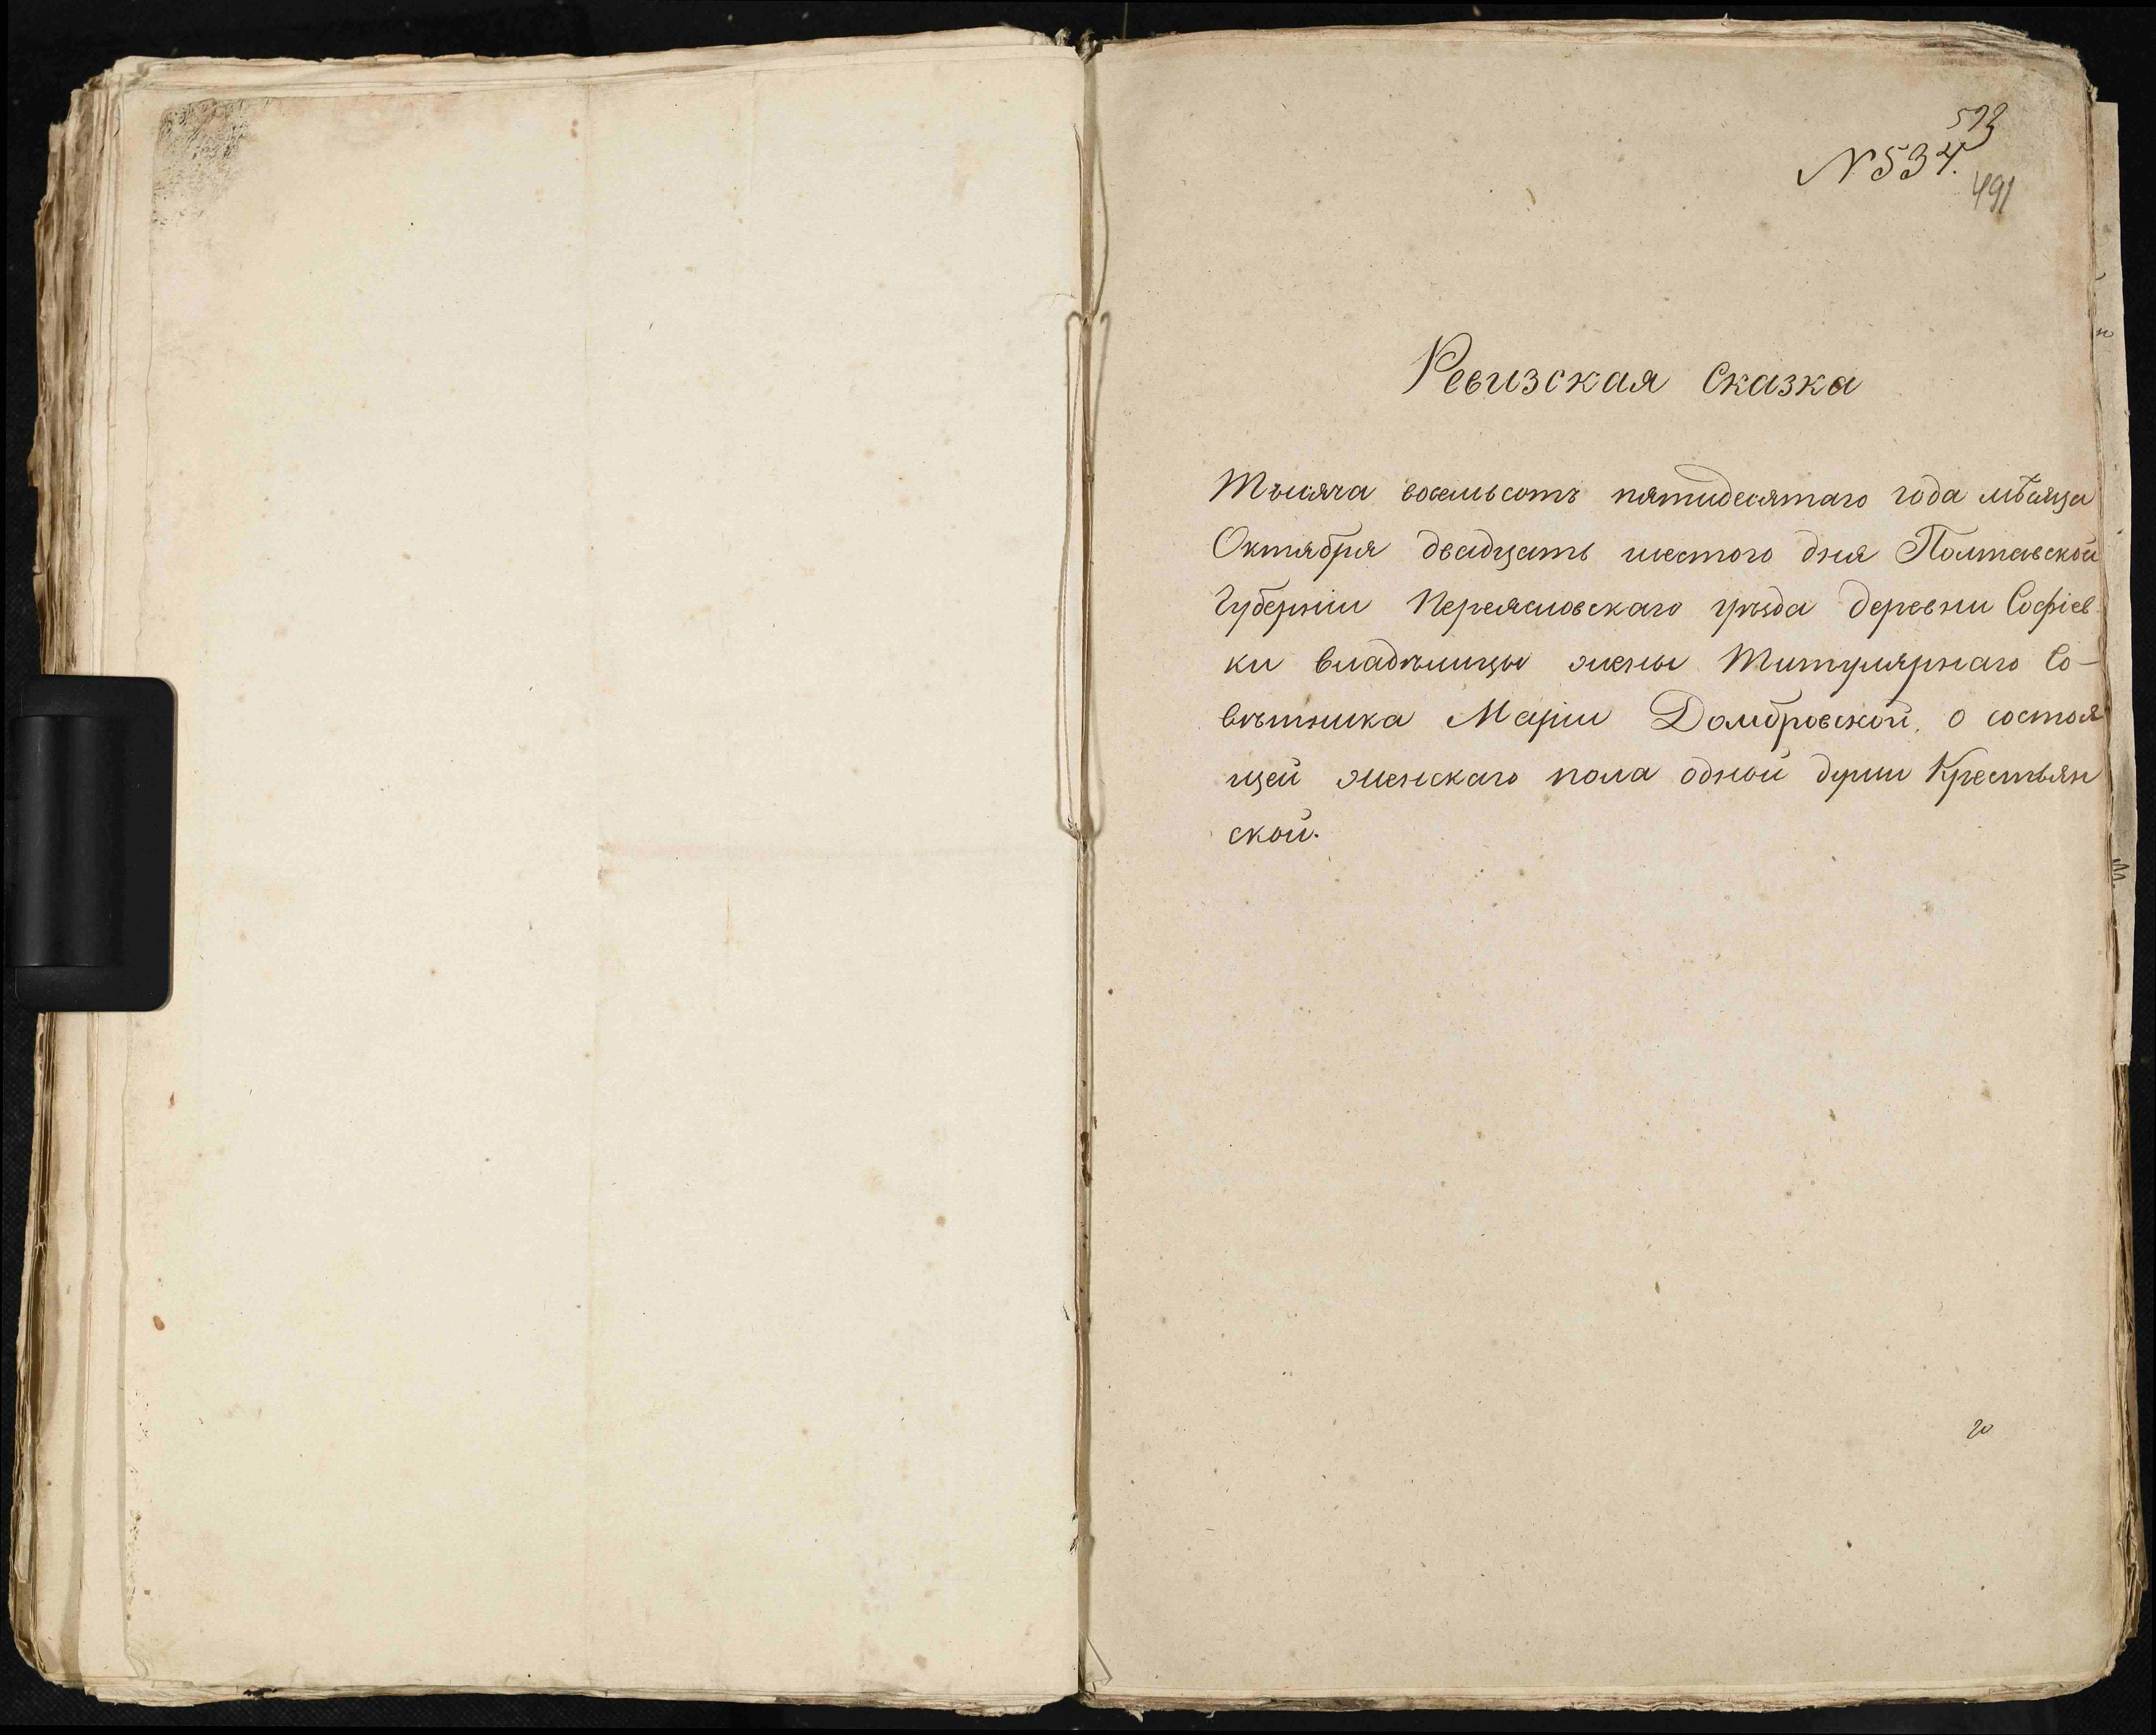 593
N 534.
491
Ревизская Сказка
Тысяча восемьсотъ пятидесятаго года мѣсяца
Октября двадцать шестого дня Полтавской
Губерніи Переясловскаго уѣзда деревни Софіев
ки владѣлицы жены Титулярнаго Со-
вѣтника Маріи Домбровской, о состоя
щей женскаго пола одной души Крестьян
ской.